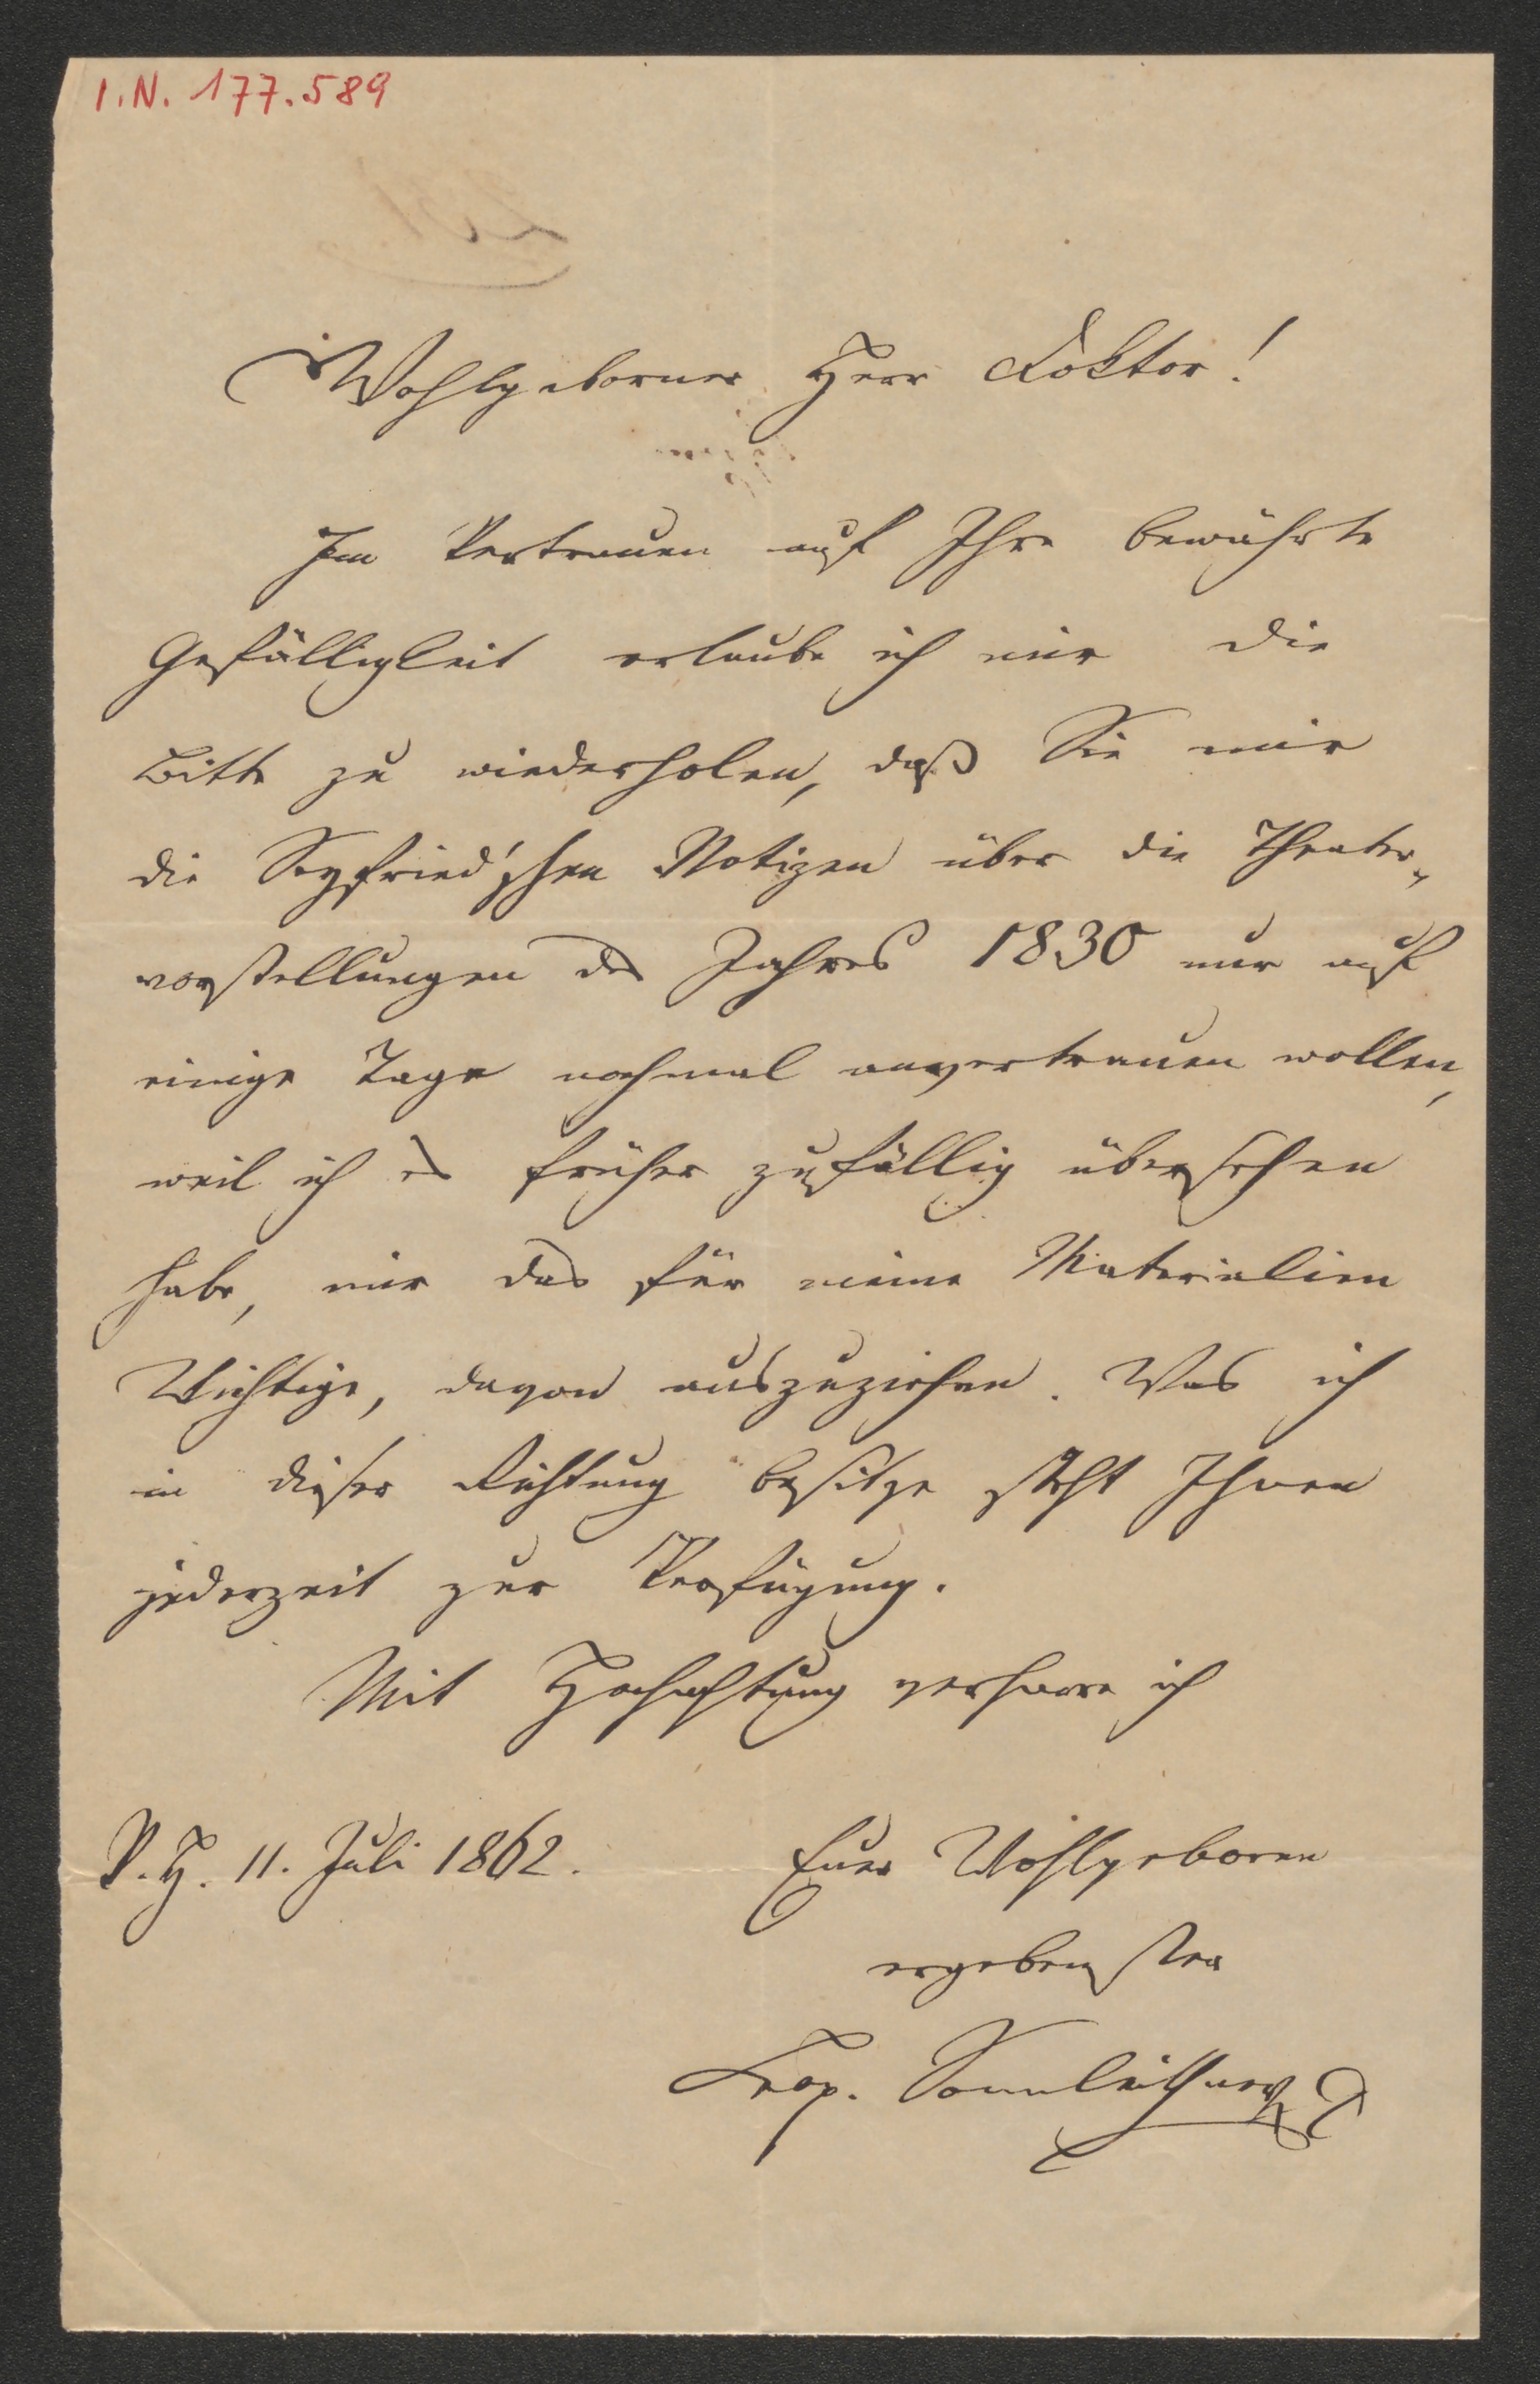 I.N. 177.589
Wohlgeborner Herr Doktor!
Im Vertrauen auf Ihre bewährte
Gefälligkeit erlaube ich mir die
Bitte zu wiederholen, daß Sie mir
die Seyfried'schen Notizen über die Theater-
vorstellungen des Jahres 1830 nur auf
einige Tage nochmal anvertrauen wollen,
weil ich es früher zufällig übersehen
habe, mir das für meine Materialien
Wichtige, davon auszuziehen. Was ich
in dieser Richtung besitze steht Ihnen
jederzeit zur Verfügung.
Mit Hochachtung verharre ich
V. H. 11. Juli 1862.
Euer Wohlgeboren
ergebenster
Leop. Sonnleithner